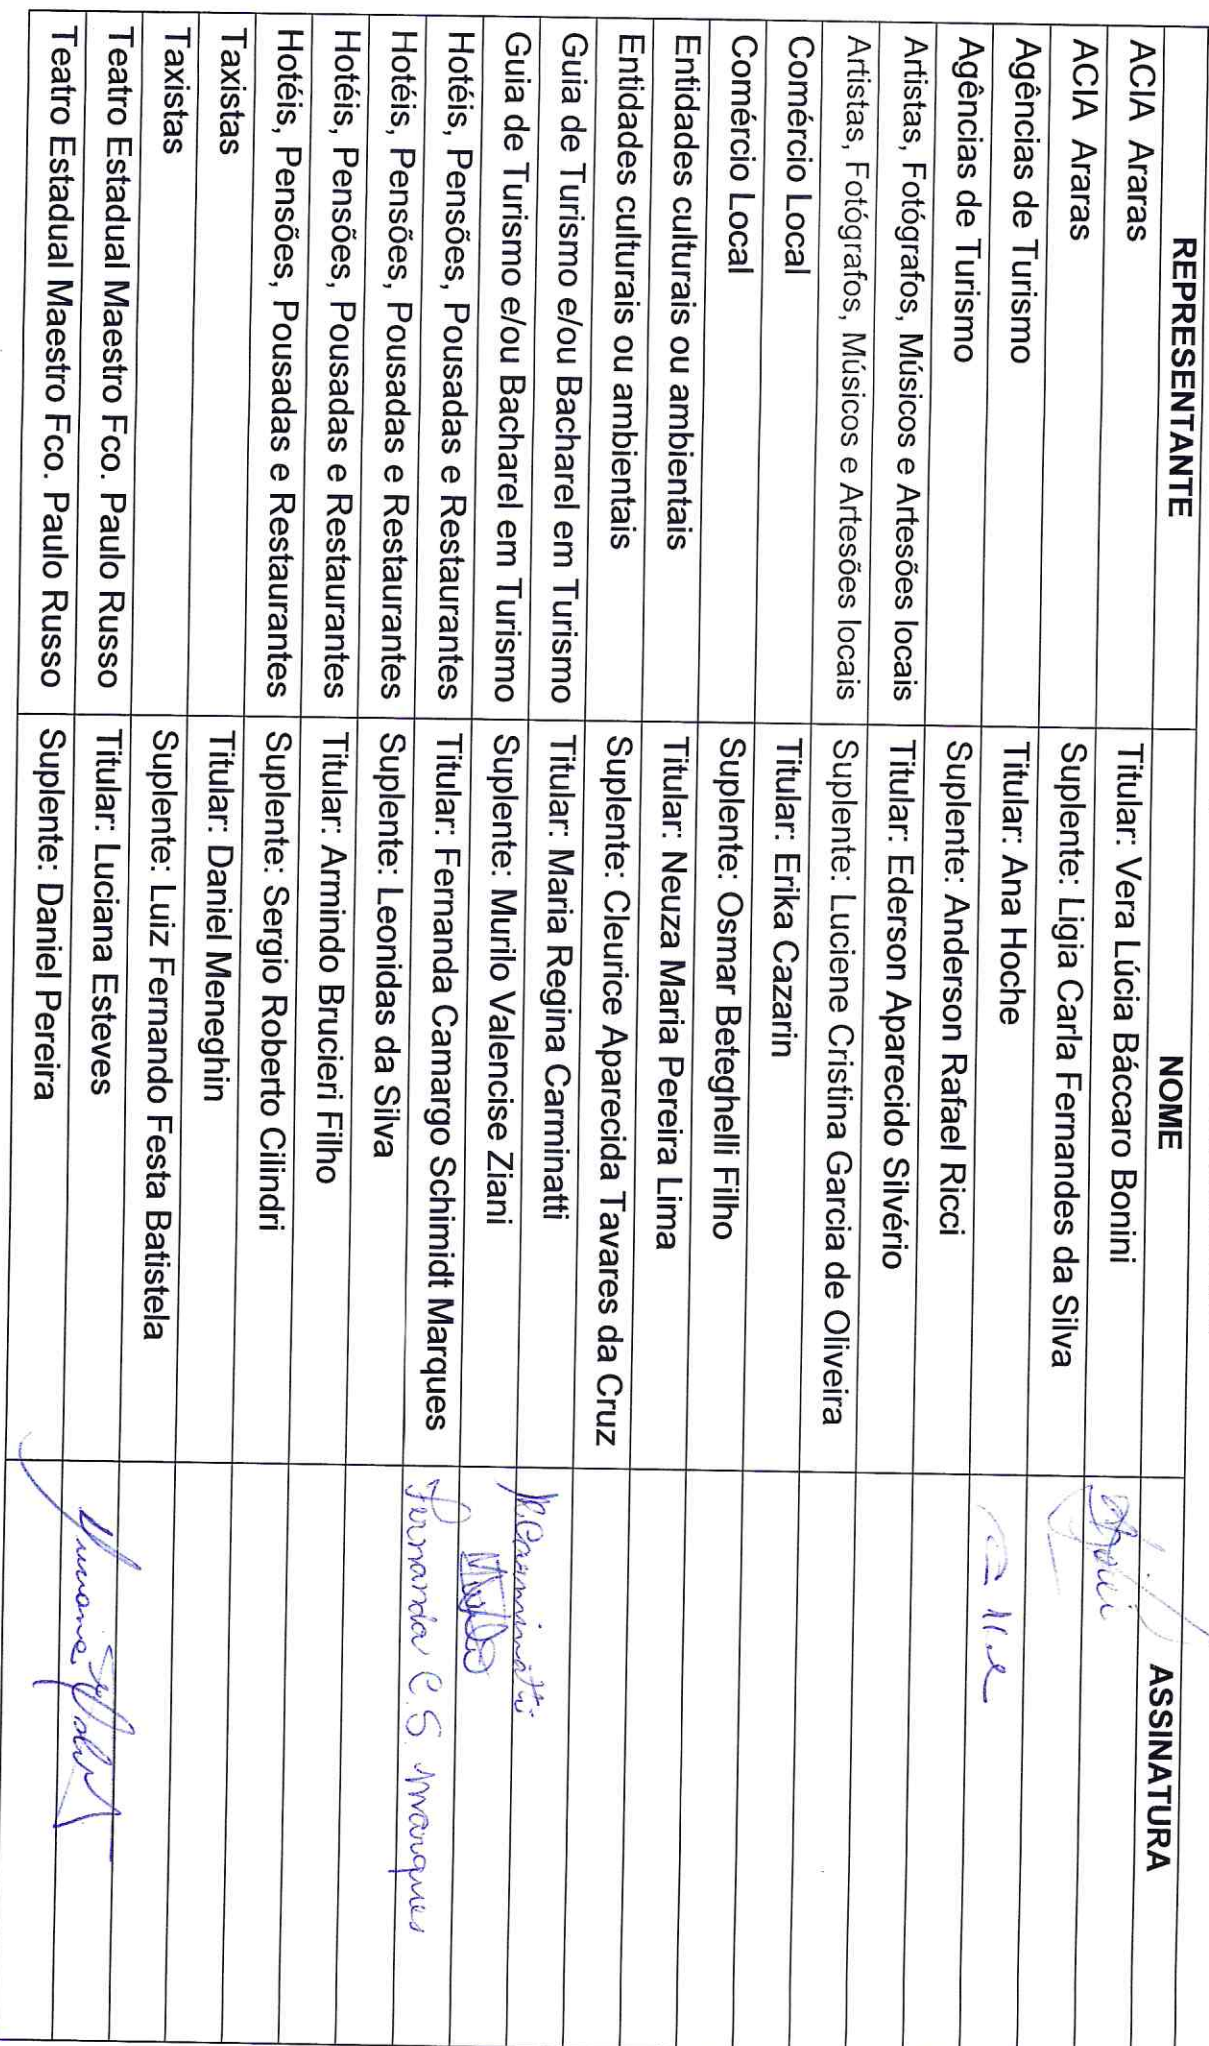 REPRESENTANTE NOME ASSINATURA
ACIA Araras Titular: Vera Lúcia Báccaro Bonini
ACIA Araras Suplente: Ligia Carla Fernandes da Silva
Agências de Turismo Titular: Ana Hoche
Agências de Turismo Suplente: Anderson Rafael Ricci
Artistas, Fotógrafos, Músicos e Artesões locais Titular: Ederson Aparecido Silvério
Artistas, Fotógrafos, Músicos e Artesões locais Suplente: Luciene Cristina Garcia de Oliveira
Comércio Local Titular: Erika Cazarin
Comércio Local Suplente: Osmar Beteghelli Filho
Entidades culturais ou ambientais Titular: Neuza Maria Pereira Lima
Entidades culturais ou ambientais Suplente: Cleurice Aparecida Tavares da Cruz
Guia de Turismo e/ou Bacharel em Turismo Titular: Maria Regina Carminatti
Guia de Turismo e/ou Bacharel em Turismo Suplente: Murilo Valencise Ziani
Hotéis, Pensões, Pousadas e Restaurantes Titular: Fernanda Camargo Schimidt Marques Fernanda C. S. Marques
Hotéis, Pensões, Pousadas e Restaurantes Suplente: Leonidas da Silva
Hotéis, Pensões, Pousadas e Restaurantes Titular: Armindo Brucieri Filho
Hotéis, Pensões, Pousadas e Restaurantes Suplente: Sergio Roberto Cilindri
Taxistas Titular: Daniel Meneghin
Taxistas Suplente: Luiz Fernando Festa Batistela
Teatro Estadual Maestro Fco. Paulo Russo Titular: Luciana Esteves
Teatro Estadual Maestro Fco. Paulo Russo Suplente: Daniel Pereira